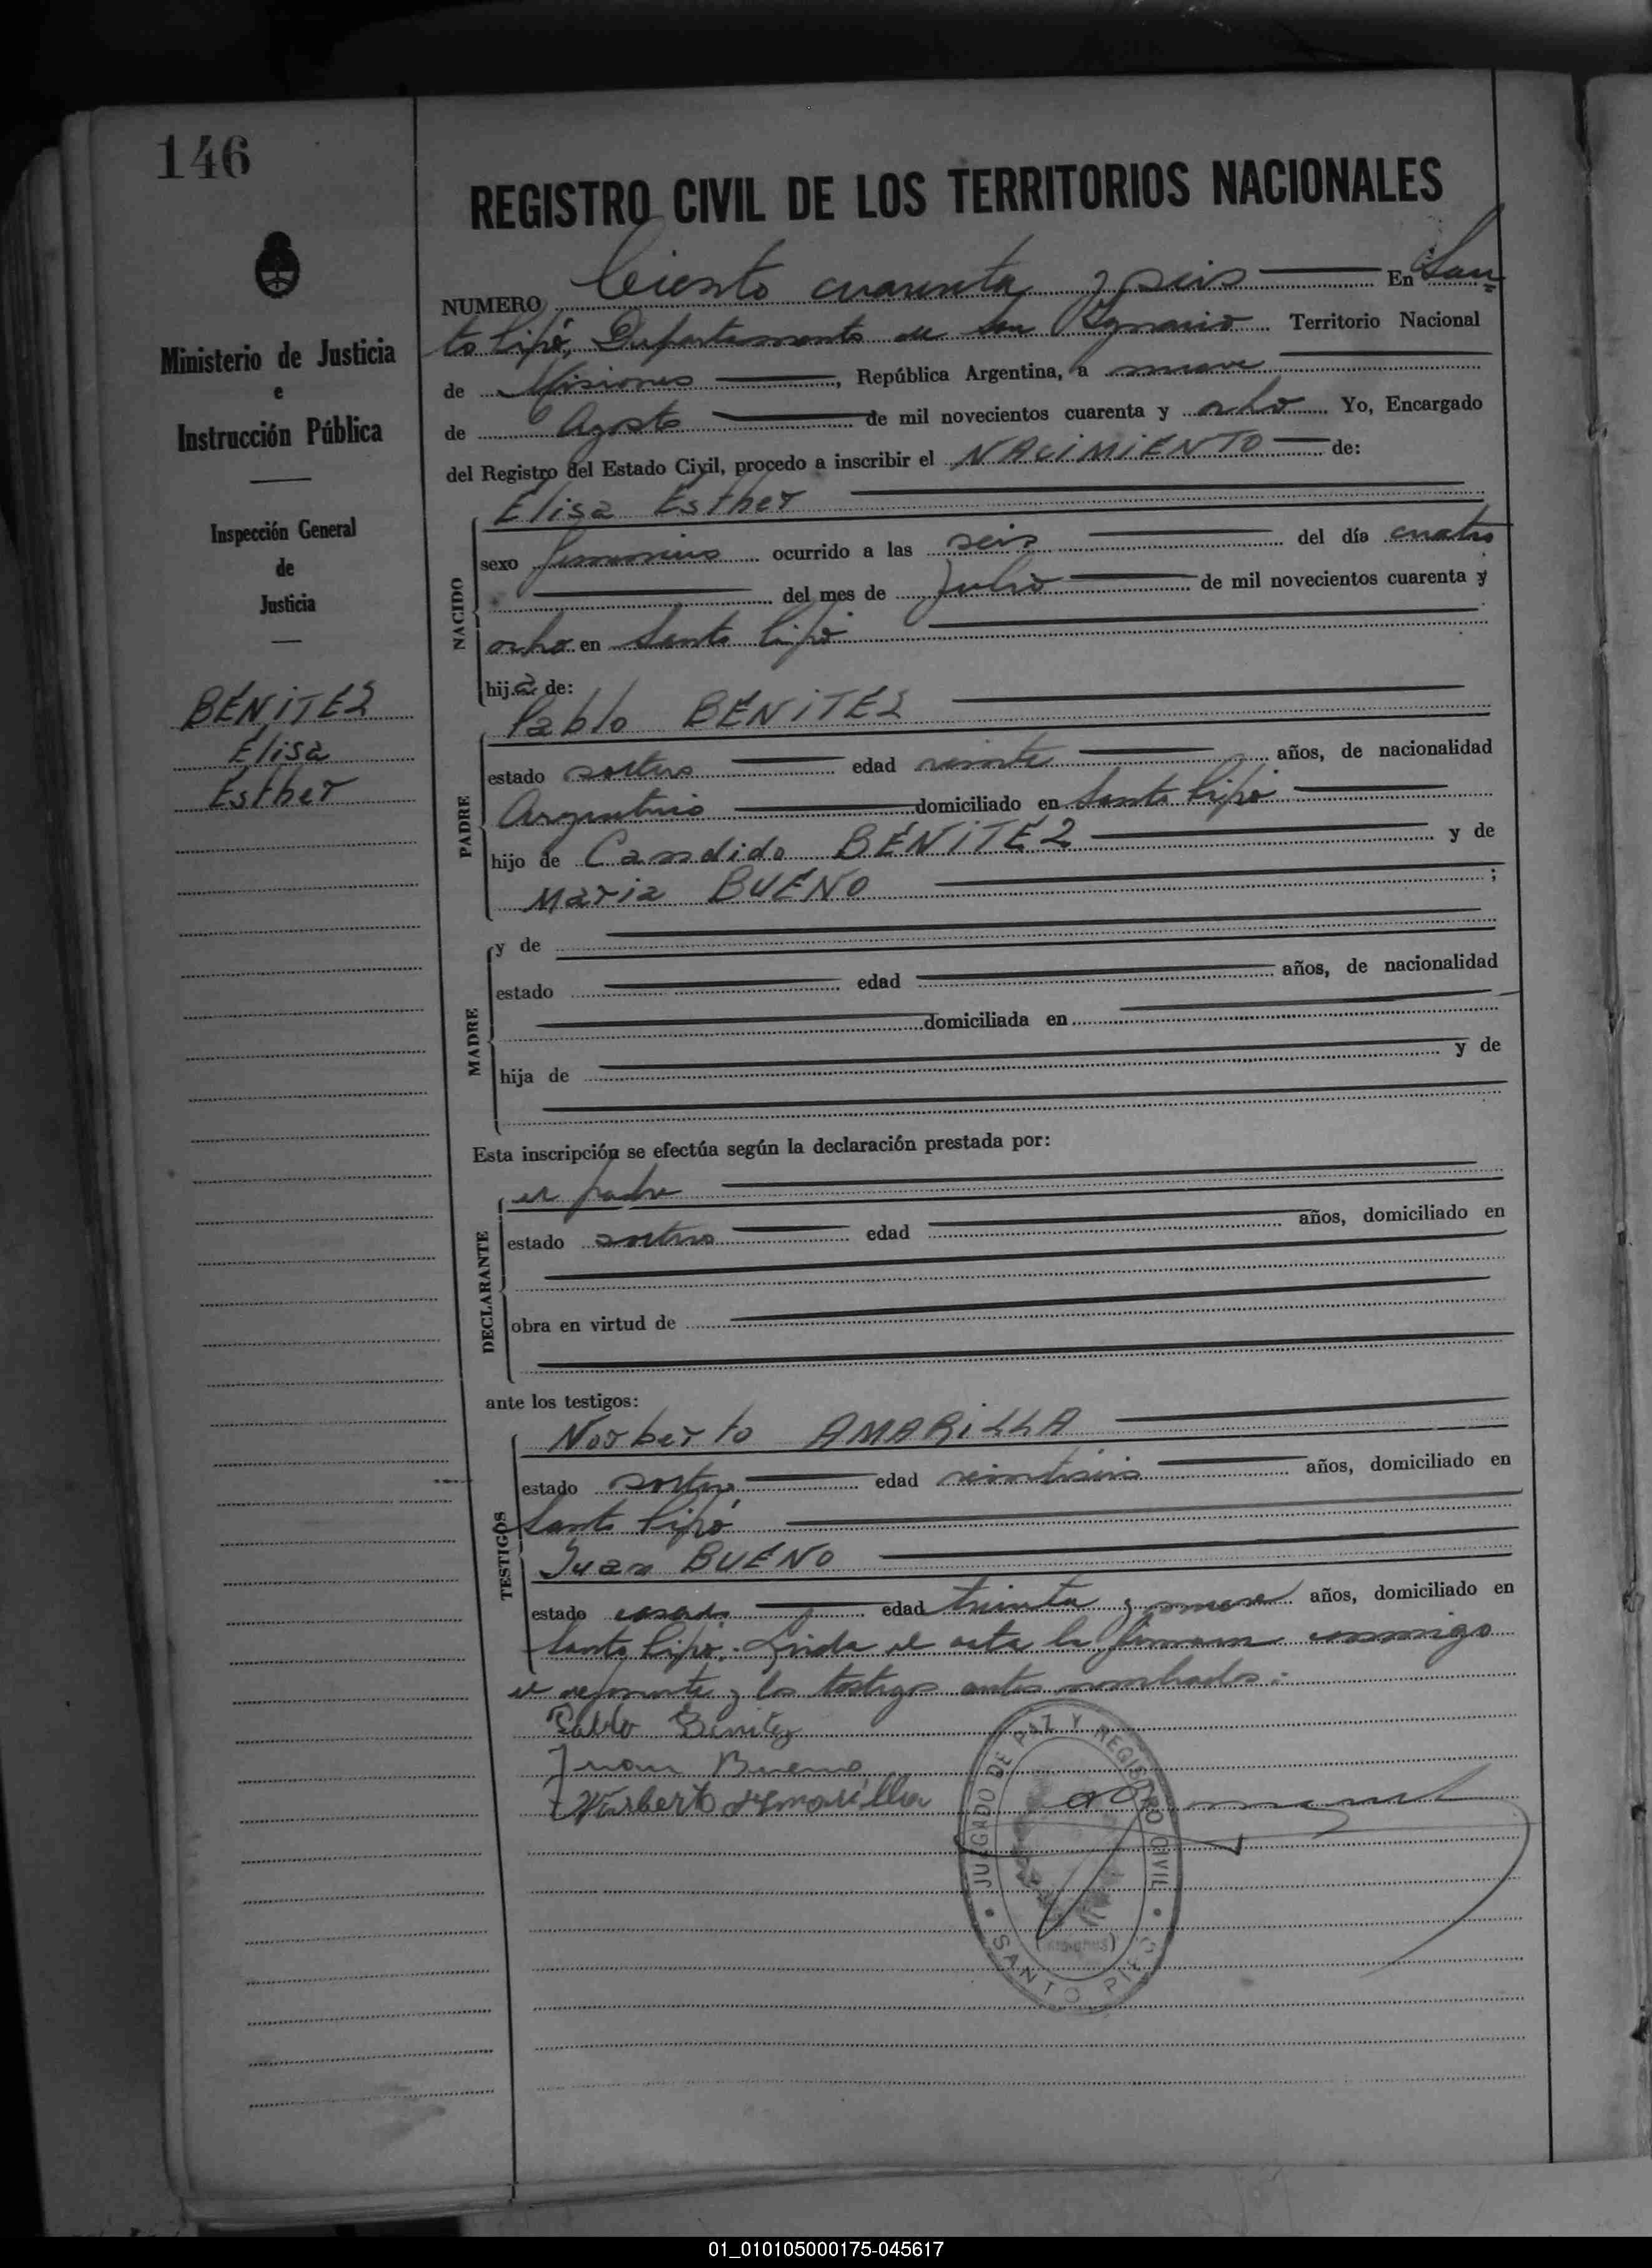 146
Ministerio de Justicia
e
Instrucción Pública
Inspección General
de
Justicia
BENITEZ
Elisa
Esther
REGISTRO CIVIL DE LOS TERRITORIOS NACIONALES
NUMERO Ciento cuarenta y seis En San
to Pipó, Departamento de San Ignacio Territorio Nacional
de Misiones, República Argentina, a nueve
de Agosto de mil novecientos cuarenta y ocho Yo, Encargado
del Registro del Estado Civil, procedo a inscribir el NACIMIENTO de:
NACIDO
Elisa Esther
sexo femenino ocurrido a las seis del día cuatro
del mes de Julio de mil novecientos cuarenta y
ocho en Santo Pipó
hija de:
PADRE
Pablo BENITEZ
estado soltero edad veinte años, de nacionalidad
Argentino domiciliado en Santo Pipó
hijo de Candido BENITEZ y de
Maria BUENO ;
MADRE
y de
estado edad años, de nacionalidad
domiciliada en
hija de y de
Esta inscripción se efectúa según la declaración prestada por:
DECLARANTE
el padre
estado soltero edad años, domiciliado en
obra en virtud de
ante los testigos:
TESTIGOS
Norberto AMARILLA
estado soltero edad veintiseis años, domiciliado en
Santo Pipó
Juan BUENO
estado casado edad treinta y nueve años, domiciliado en
Santo Pipó. Leida el acta la firman conmigo
el exponente y los testigos antes nombrados:
Pablo Benitez
Juan Bueno
Norberto Amarilla
JUZGADO DE PAZ Y REGISTRO CIVIL
SANTO PIPÓ
(MISIONES)
01_010105000175-045617